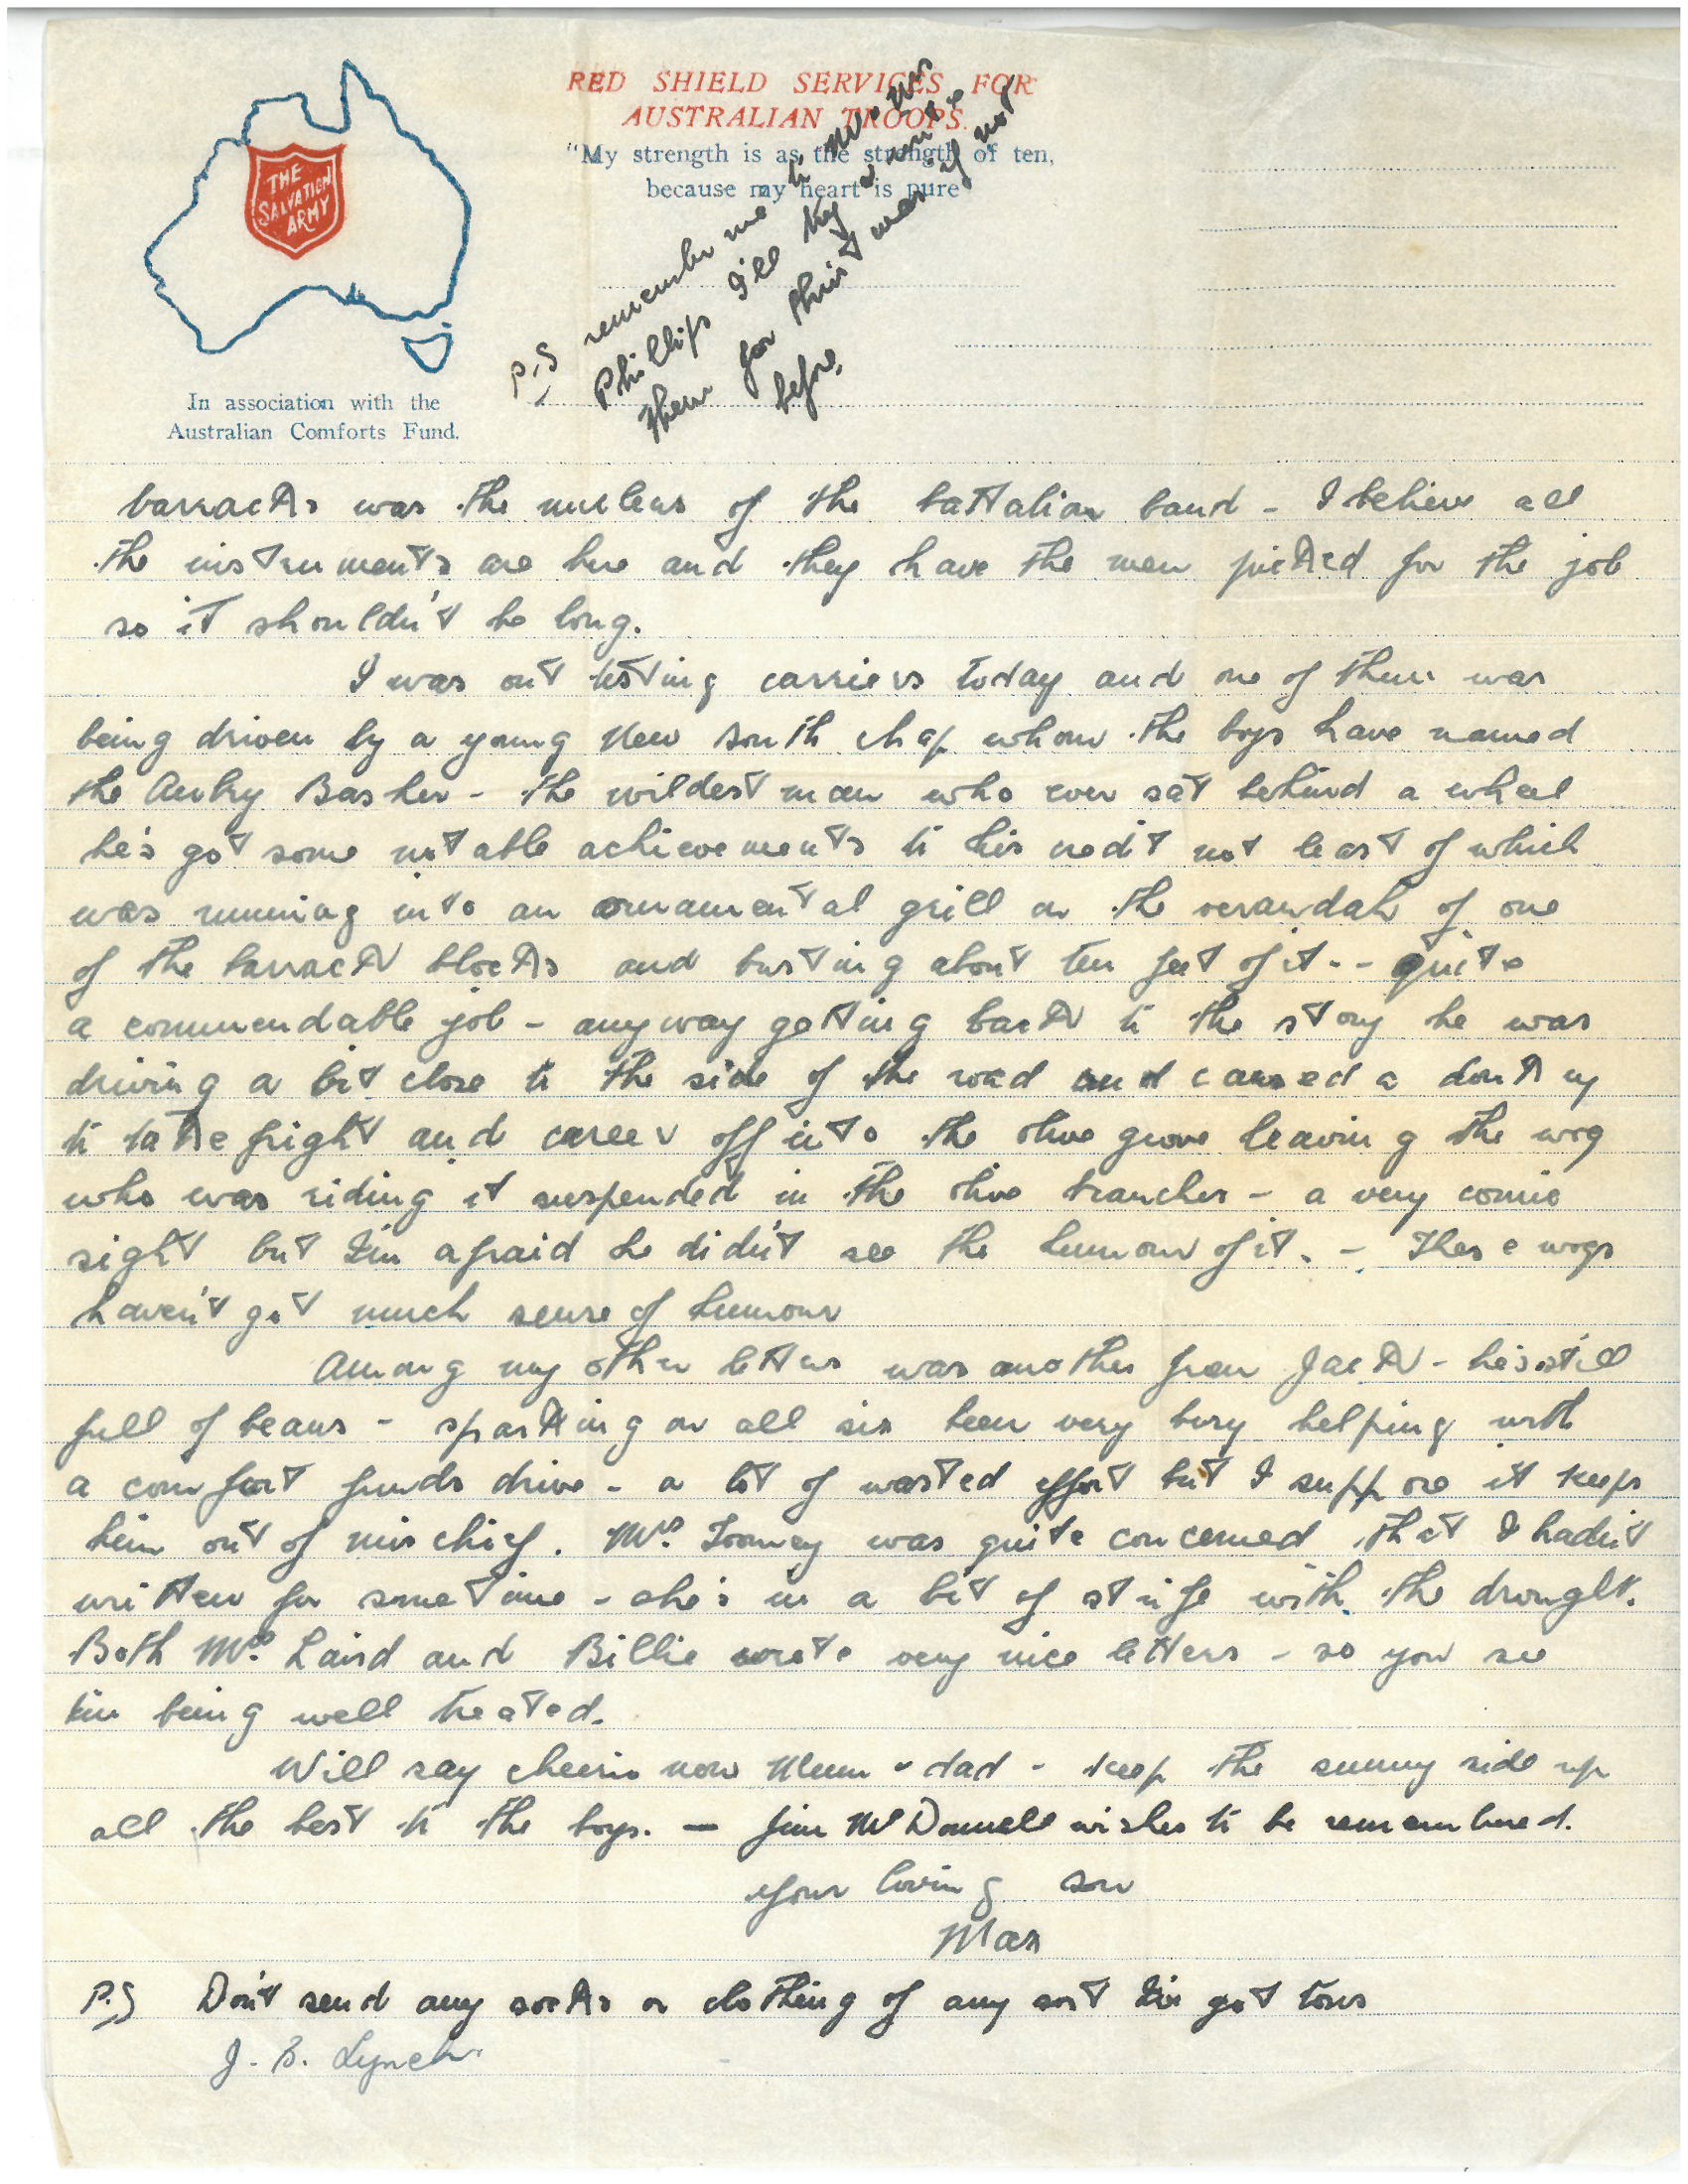 RED SHIELD SERVICES FOR
AUSTRALIAN TROOPS.
"My strength is as the strength of ten,
because my heart is pure"
THE
SALVATION
ARMY
In association with the
Australian Comforts Fund.
P.S remember me to Mr & Mrs
Phillips I'll try & write
them for Christmas if not
before.
barracks was the nucleus of the battalion band - I believe all
the instruments are here and they have the men picked for the job
so it shouldn't be long.
I was out testing carriers today and one of them was
being driven by a young New South chap whom the boys have named
the Basher - the wildest man who ever sat behind a wheel
he's got some notable achievements to his credit not least of which
was running into an ornamental grill on the verandah of one
of the barrack blocks and busting about ten feet of it -- quite
a commendable job - anyway getting back to the story he was
driving a bit close to the side of the road and caused a donkey
to take fright and career off into the olive grove leaving the wog
who was riding it suspended in the olive branches - a very comic
sight but I'm afraid he didn't see the humour of it. - These wogs
haven't got much sense of humour
Among my other letters was another from Jack - he's still
full of beans - sparking on all six been very busy helping with
a comfort funds drive - a lot of wasted effort but I suppose it keeps
him out of mischief. Mrs Toomey was quite concerned that I hadn't
written for sometime - she's in a bit of strife with the drought.
Both Mrs Laird and Billie wrote very nice letters - so you see
I'm being well treated.
Will say cheerio now Mum & dad - keep the sunny side up
all the best to the boys. - Jim McDonnell wishes to be remembered.
Your loving son
Max
P.S Don't send any socks or clothing of any sort I've got tons
J. B. Lynch.